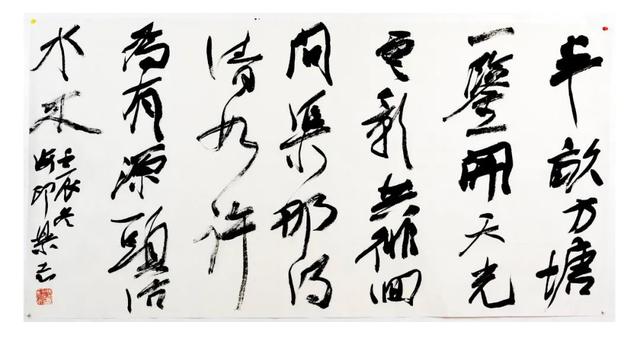 半畝方塘
一鑒開天光
雲彩共徘徊
問渠那得
清如許
為有源頭活
水來
壬辰冬